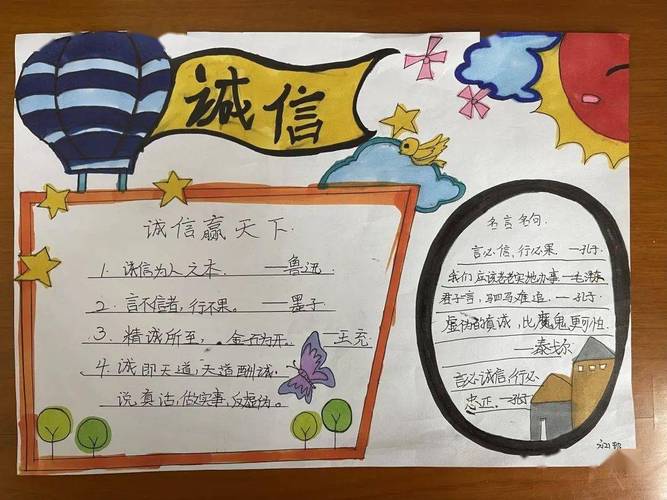 诚信
诚信赢天下
1. 诚信为人之本. ——鲁迅
2. 言不信者,行不果。——墨子
3. 精诚所至,金石为开。——王充
4. 诚即天道,天道酬诚,
说真话,做实事,反虚伪。
名言名句.
言必信,行必果. —孔子
我们应该老老实实地办事—毛泽东
君子一言,驷马难追.—孔子.
虚伪的真诚,比魔鬼更可怕.
—泰戈尔
言必诚信,行必
忠正。—孔子